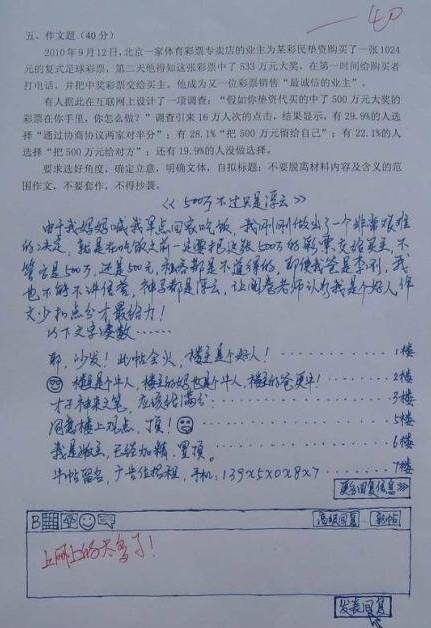 -40
五、作文题（40分）
2010年9月12日,北京一家体育彩票专卖店的业主为某彩民垫资购买了一张1024
元的复式足球彩票，第二天他得知这张彩票中了533万元大奖，在第一时间给购买者
打电话，并把中奖彩票交给买主，他成为又一位彩票销售“最诚信的业主”。
有人据此在互联网上设计了一项调查：“假如你垫资代买的中了500万元大奖的
彩票在你手里，你怎么做？”调查引来16万人次的点击，结果显示，有29.9%的人选
择“通过协商协议两家对半分”；有28.1%“把500万元留给自己”；有22.1%的人
选择“把500万元给对方”；还有19.9%的人没做选择。
要求选好角度，确定立意，明确文体，自拟标题；不要脱离材料内容及含义的范
围作文，不要套作，不得抄袭。
《500万不过只是浮云》
由于我妈妈喊我早点回家吃饭，我刚刚做出了一个非常艰难
的决定，就是在吃饭之前一定要把这张500万的彩票交给买主，不
管它是500万，还是500元，私吞都是不道德的，即使我爸是李刚，我
也不能不讲信誉，神马都是浮云，让阅卷老师认为我是个好人，作
文少扣点分才最给力！
以下文字凑数……
耶，沙发！此帖会火，楼主是个好人！ 1楼
楼主是个牛人，楼主的妈也是个牛人，楼主的爸更牛！ 2楼
才子神来之笔，应该给满分. 3楼
同意楼上观点，顶！ 5楼
我是版主，已经加精、置顶。 6楼
牛帖留名，广告位招租，手机：139x5x0x8x7 7楼
更多回复信息>>
B 高级回复 新帖
上网上的太多了！
发表回复